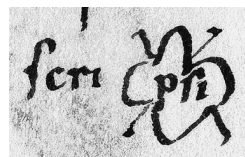 ſcri pſi